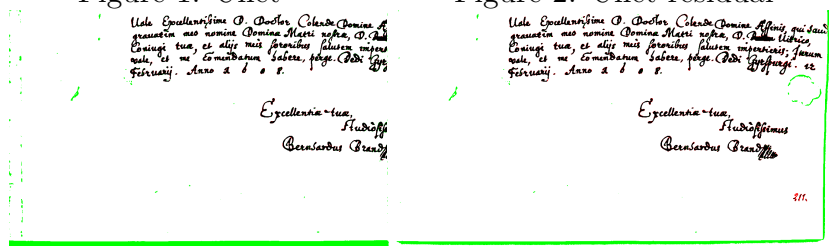 Figure 1: Unet
Figure 2: Unet residual
Vale Excellentissime D. Doctor Colende Domine
meo nomine Domina Matri nostra, D.
Coniugi tua, et alijs meis sororibus salutem
vale, et me Comendatum habere, perge. Dedi
Februarij. Anno 1608.
Excellentiæ tuæ,
Bernhardus Brand
Vale Excellentissime D. Doctor Colende Domine Affinis, qui
meo nomine Domina Matri nostra, D. Uitrico,
Coniugi tua, et alijs meis sororibus salutem impertieris; Iterum
vale, et me Comendatum habere, perge. Dedi 12
Februarij. Anno 1608.
Excellentiæ tuæ,
Studiosissimus
Bernhardus Brand
211.